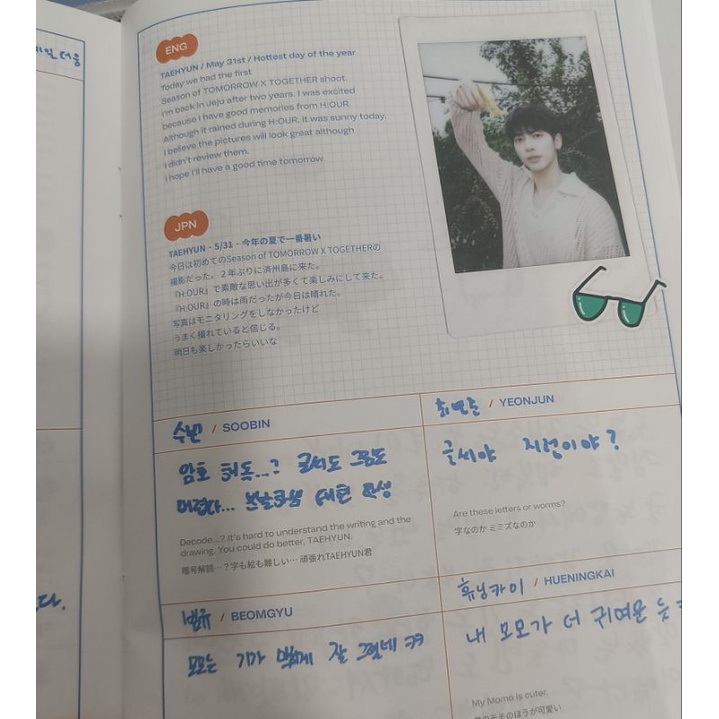 ENG
TAEHYUN / May 31st / Hottest day of the year
Today we had the first
Season of TOMORROW X TOGETHER shoot.
I'm back in Jeju after two years. I was excited
because I have good memories from H:OUR.
Although it rained during H:OUR, it was sunny today.
I believe the pictures will look great although
I didn't review them.
I hope I'll have a good time tomorrow.
JPN
TAEHYUN - 5/31 - 今年の夏で一番暑い
今日は初めてのSeason of TOMORROW X TOGETHERの
撮影だった。２年ぶりに済州島に来た。
『H:OUR』で素敵な思い出が多くて楽しみにして来た。
『H:OUR』の時は雨だったが今日は晴れた。
写真はモニタリングをしなかったけど
うまく撮れていると信じる。
明日も楽しかったらいいな
수빈 / SOOBIN
암호 해독...? 글씨도 그림도
어렵다... 태현
Decode...? It's hard to understand the writing and the
drawing. You could do better, TAEHYUN.
暗号解読…？字も絵も難しい… 頑張れTAEHYUN君
최연준 / YEONJUN
글씨야 지렁이야?
Are these letters or worms?
字なのか ミミズなのか
범규 / BEOMGYU
기가 막히게 잘 그렸네 ㅋㅋ
휴닝카이 / HUENINGKAI
내 모모가 더 귀여운 듯
My Momo is cuter.
ももの方が可愛い
다.